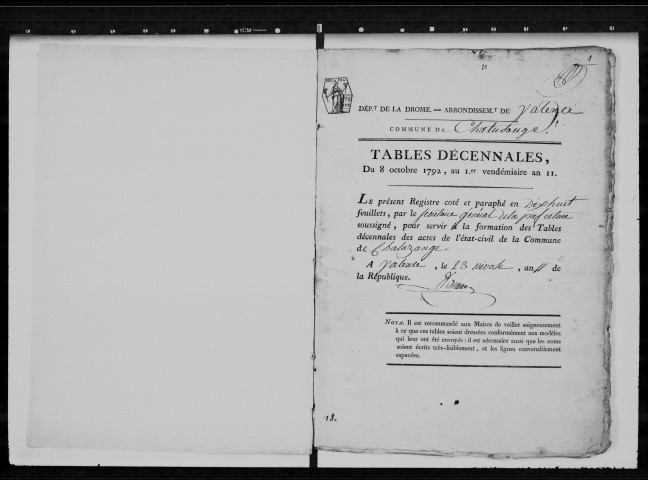 1
DÉP.T DE LA DROME. — ARRONDISSEM.T DE Valence
COMMUNE DE Chatuzange
TABLES DÉCENNALES,
Du 8 octobre 1792, au 1.er vendémiaire an 11.
LE présent Registre coté et paraphé en Dix huit
feuillets, par le secretaire général de la prefecture
soussigné, pour servir à la formation des Tables
décennales des actes de l'état-civil de la Commune
de Chatuzange
A Valence, le 23 nivose, an 11 de
la République.
NOTA. Il est recommandé aux Maires de veiller soigneusement
à ce que ces tables soient dressées conformément aux modèles
qui leur ont été envoyés : il est nécessaire aussi que les noms
soient écrits très-lisiblement, et les lignes convenablement
espacées.
18.